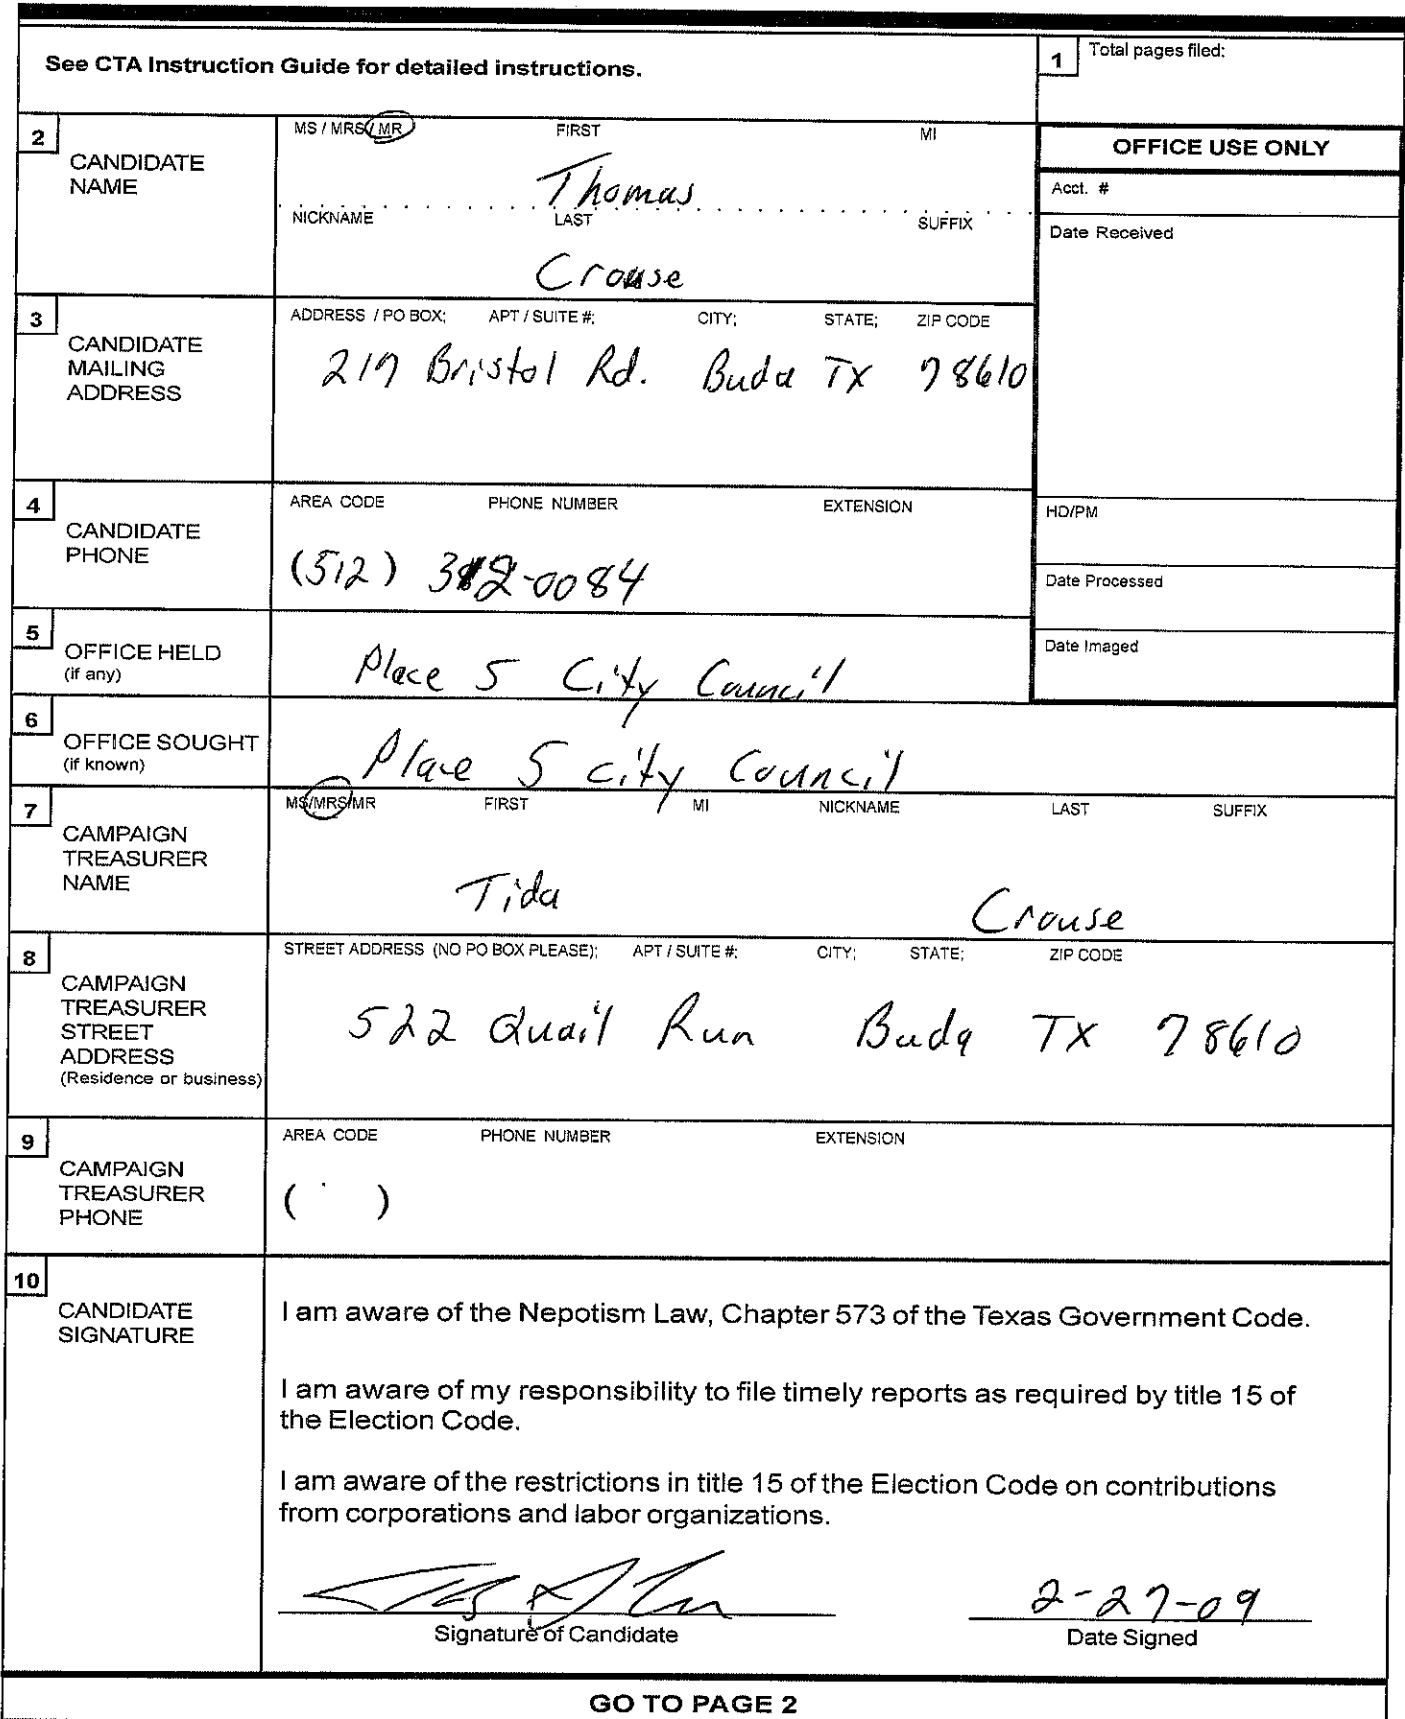 See CTA Instruction Guide for detailed instructions.
1 Total pages filed:
2 CANDIDATE NAME
MS / MRS / MR FIRST MI
Thomas
NICKNAME LAST SUFFIX
Crouse
OFFICE USE ONLY
Acct. #
Date Received
3 CANDIDATE MAILING ADDRESS
ADDRESS / PO BOX; APT / SUITE #; CITY; STATE; ZIP CODE
217 Bristol Rd. Buda TX 78610
4 CANDIDATE PHONE
AREA CODE PHONE NUMBER EXTENSION
(512) 312-0084
HD/PM
Date Processed
Date Imaged
5 OFFICE HELD
(if any)
Place 5 City Council
6 OFFICE SOUGHT
(if known)
Place 5 city Council
7 CAMPAIGN TREASURER NAME
MS/MRS/MR FIRST MI NICKNAME LAST SUFFIX
Tida Crouse
8 CAMPAIGN TREASURER STREET ADDRESS
(Residence or business)
STREET ADDRESS (NO PO BOX PLEASE); APT / SUITE #; CITY; STATE; ZIP CODE
522 Quail Run Buda TX 78610
9 CAMPAIGN TREASURER PHONE
AREA CODE PHONE NUMBER EXTENSION
( )
10 CANDIDATE SIGNATURE
I am aware of the Nepotism Law, Chapter 573 of the Texas Government Code.
I am aware of my responsibility to file timely reports as required by title 15 of
the Election Code.
I am aware of the restrictions in title 15 of the Election Code on contributions
from corporations and labor organizations.
2-27-09
Signature of Candidate Date Signed
GO TO PAGE 2